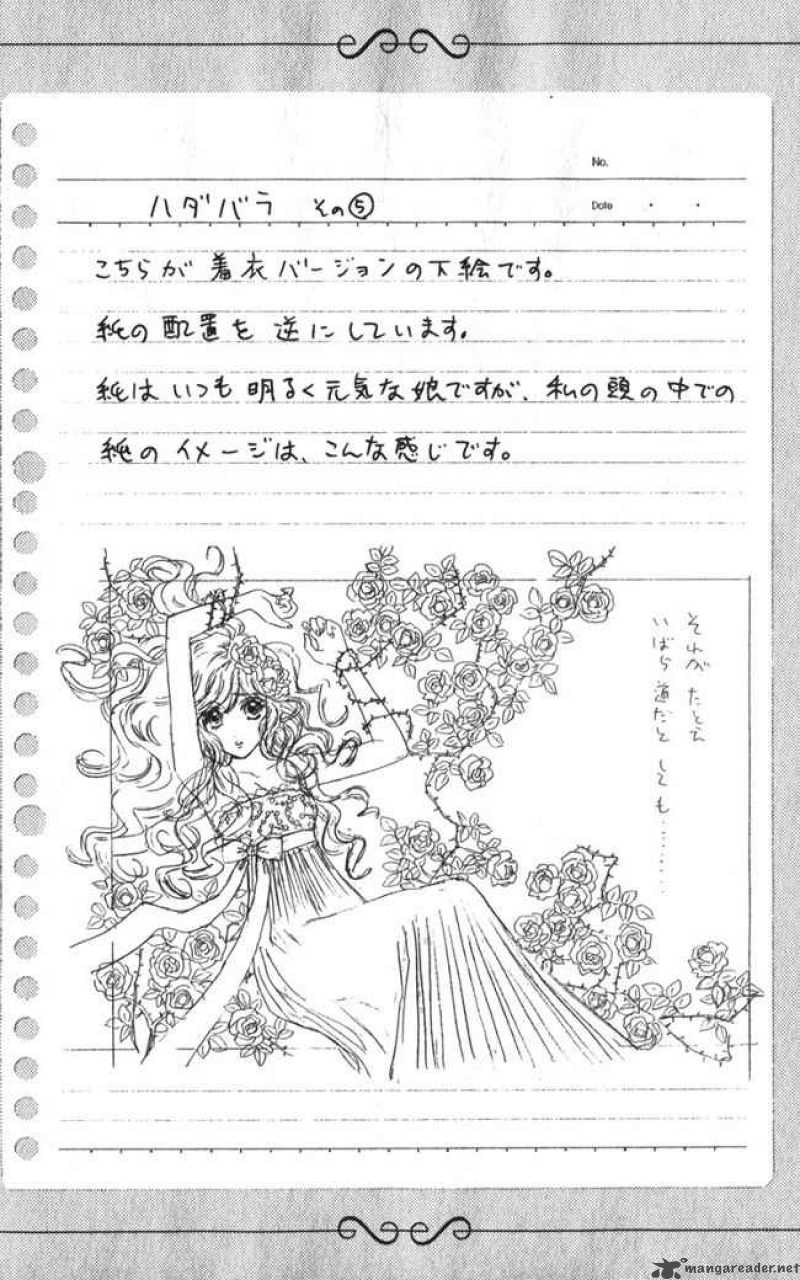 No.
ハダバラ その⑤
Date ・ ・
こちらが 着衣バージョンの下絵です。
純の配置を逆にしています。
純は いつも 明るく元気な娘ですが、私の頭の中での
純のイメージは、こんな感じです。
それが たとえ
いばら道だと しても…………
mangareader.net